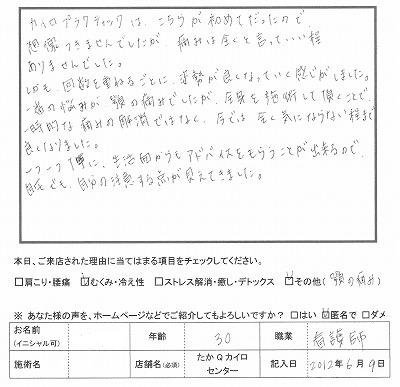 カイロプラクティックは、こちらが初めてだったので、
想像つきませんでしたが、痛みは全くと言っていい程
ありませんでした。
しかも、回数を重ねるごとに、姿勢が良くなっていく感じがしました。
一番の悩みが、顎の痛みでしたが、全身を施術して頂くことで、
一時的な痛みの解消ではなく、今では全く気にならない程まで
良くなりました。
に、生活面からもアドバイスをもらうことが出来るので、
自分の注意する点が見えてきました。
本日、ご来店された理由に当てはまる項目をチェックしてください。
□肩こり・腰痛 ☑むくみ・冷え性 □ストレス解消・癒し・デトックス ☑その他(顎の痛み)
※ あなた様の声を、ホームページなどでご紹介してもよろしいですか? □はい ☑匿名で □ダメ
お名前 (イニシャル可) 年齢 30 職業 看護師
施術名 店舗名(必須) たかQカイロセンター 記入日 2012年6月9日